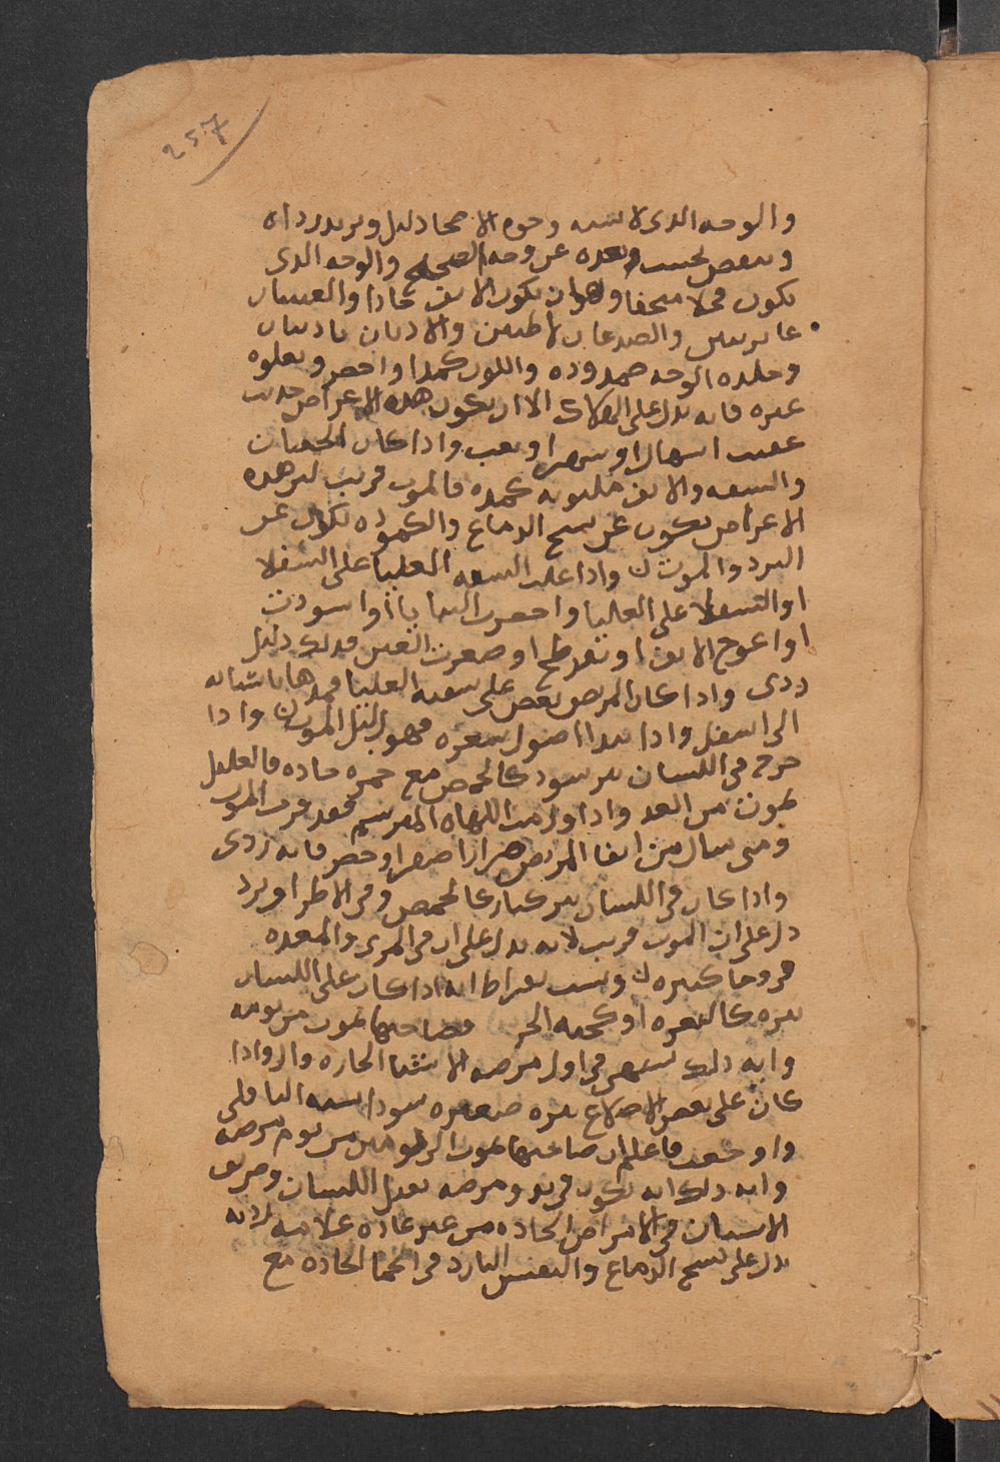 257
والوجه الذي لا يشبه وجوه الاصحا دليل ويزيد رداه
وينقص بحسب وبعده عن وجه الصحيح والوجه الذي
يكون قحلا منخفا وهو ان يكون الانف حادا والعينان
غايرتين والصدغان لاطيين والاذنان باردتان
وجلدة الوجه ممدوده واللون كمدا او اخضر ويعلوه
غبره فانه يدل على الهلاك الا ان يكون هذه الاعراض حدثت
عقيب اسهال او سهر او تعب واذا كان الجفنان
والشفه والانف ملتويه كمده فالموت قريب لان هذه
الاعراض تكون عن تشنج الدماغ والكموده تكون عن
البرد والموت واذا علت الشفه العليا على السفلا
او السفلا على العليا واخضرت الثنايا او اسودت
او اعوج الانف او تفرطح او صغرت العين فذلك دليل
ردي واذا كان المريض يعض على شفته العليا ويمدها باسنانه
الى اسفل واذا بدا اصول شعره فهو دليل الموت واذا
خرج في اللسان بثر سود كالحمص مع حمى حاده فالعليل
يموت من الغد واذا ورمت اللهاه للمبرسم فقد قرب الموت
ومتى سال من انف المريض مرارا اصفر او اخضر فانه ردي
واذا كان في اللسان بثر كبار كالحمص وفي الاطراف برد
دل على ان الموت قريب لانه يدل على ان في المري والمعده
قروحا كثيره ونسب بقراط انه اذا كان على اللسان
بثره كالبعره او كحبه الخر فصاحبها يموت من يومه
وايه ذلك يشتهي في اول مرضه الاشيا الحاره واذا
كان على بعض الاضلاع بثره صغيره سودا تشبه الباقلى
واوجعت فاعلم ان صاحبها يموت الى يومين من يوم مرضه
وايه ذلك انه يكون في بدو مرضه ثقيل اللسان وصريف
الاسنان في الامراض الحاده من غير عاده علامه رديه
يدل على تشنج الدماغ والنفس البارد في الحما الحاده مع